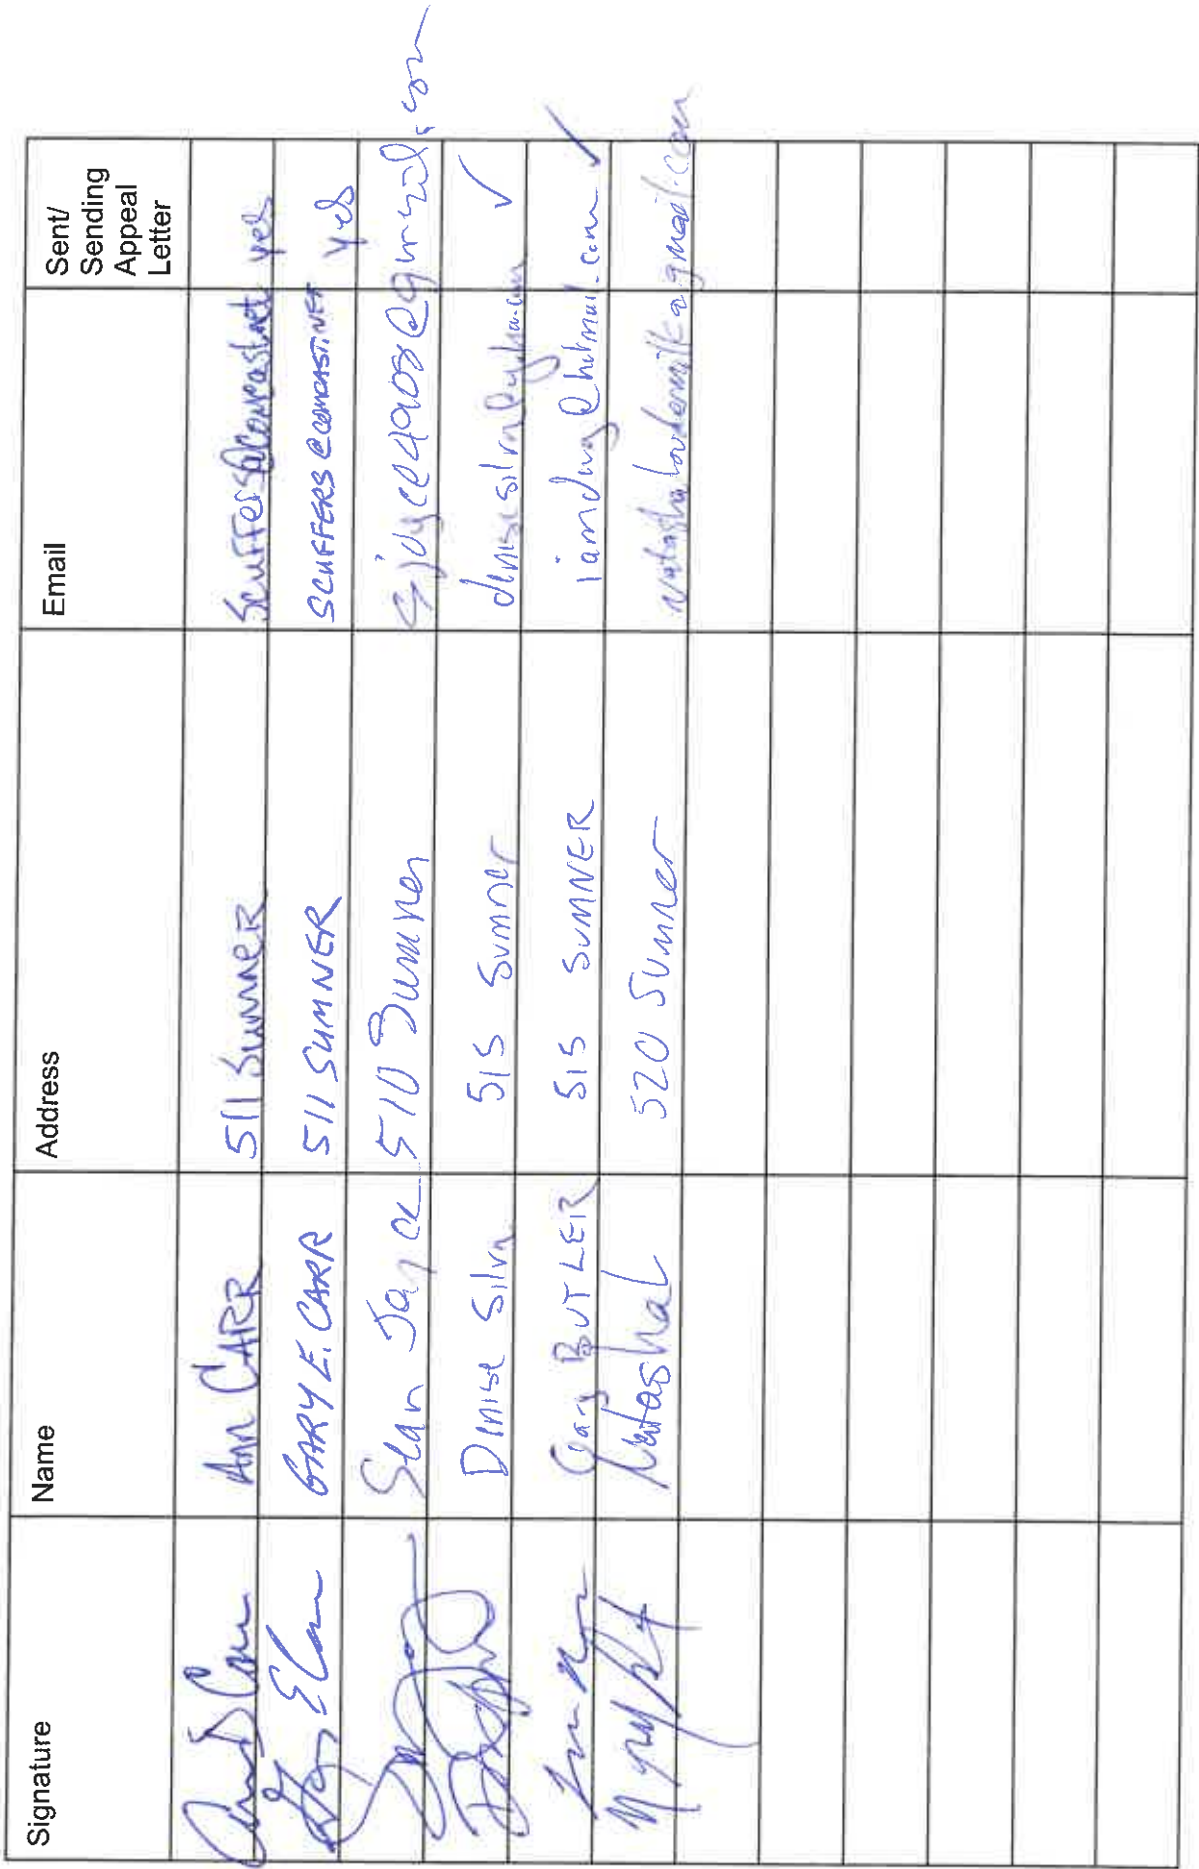 Signature Name Address Email Sent/ Sending Appeal Letter
Ann CARR 511 Sumner Scuffers@comcast.net yes
GARY E. CARR 511 SUMNER SCUFFERS@COMCAST.NET yes
Sean Joyce 510 Sumner sjoyce4908@gmail.com
Denise Silva 515 Sumner denisesilva@yahoo.com ✓
Gary BUTLER 515 SUMNER iamdwg@hotmail.com ✓
Natasha L 520 Sumner